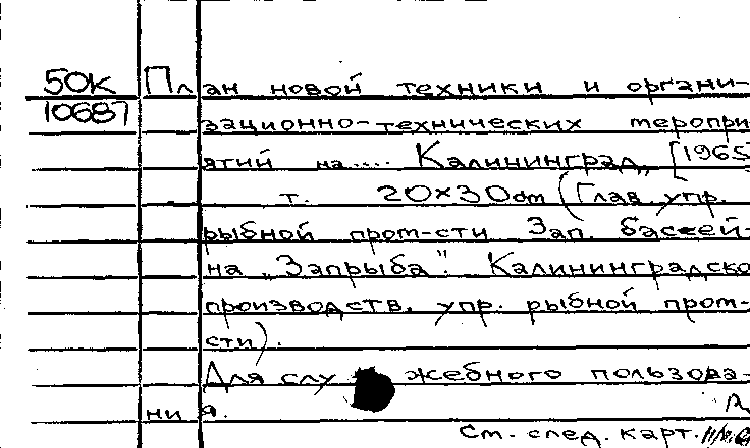 50К План новой техники и органи-
10687 зационно-технических меропри
ятий на.... Калининград, [1965
т. 20×30 см (Глав. упр.
рыбной пром-сти Зап. бассей-
на „Запрыба". Калининградско
производств. упр. рыбной пром-
сти).
Для слу жебного пользова-
ни я.
См. след. карт.